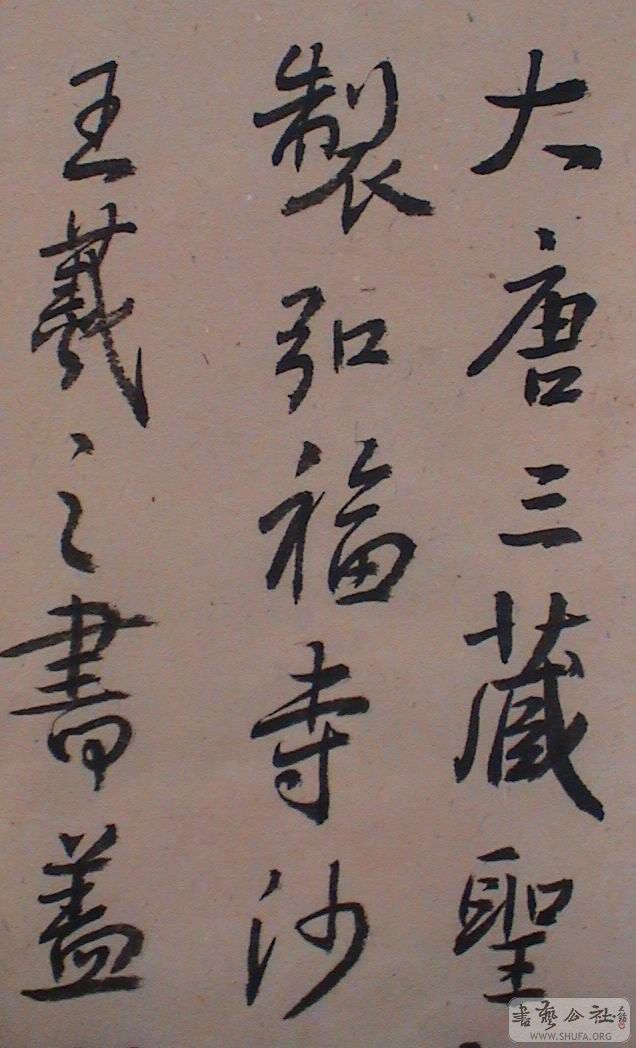 大唐三藏聖
製弘福寺沙
王羲之書蓋
書藝公社
WWW.SHUFA.ORG